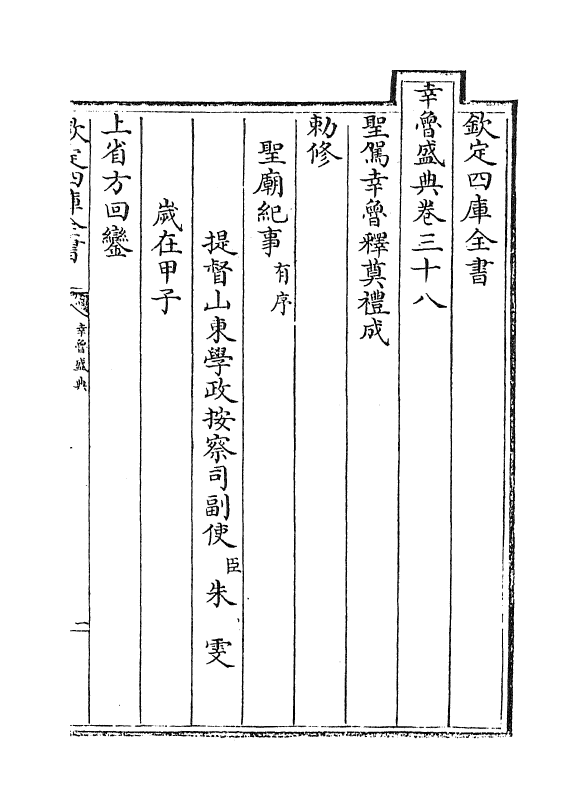 欽定四庫全書
幸魯盛典卷三十八
聖駕幸魯釋奠禮成
勅修
聖廟紀事有序
提督山東學政按察司副使臣朱雯
歲在甲子
上省方回鑾
欽定四庫全書
幸魯盛典